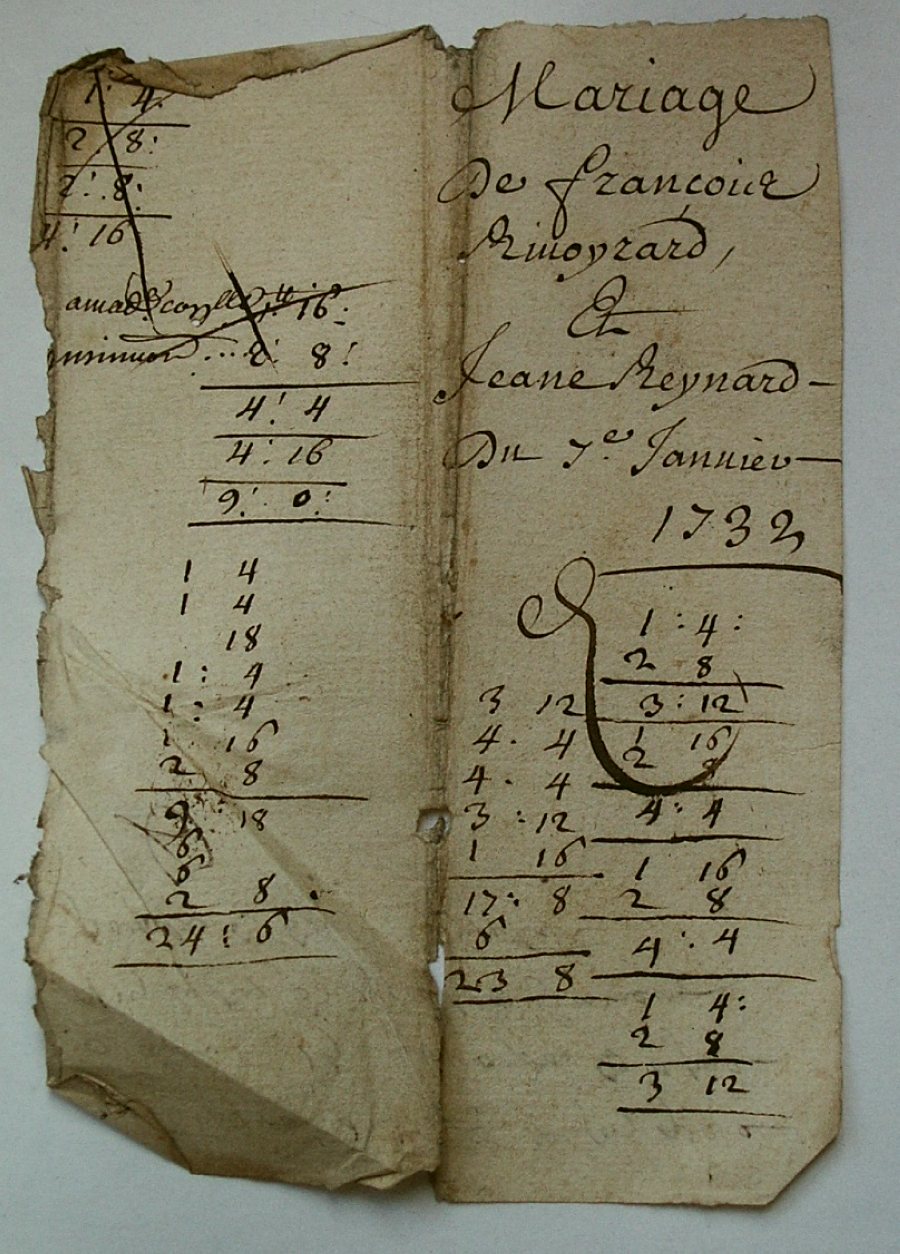 1: 4.
2. 8:
2: 8:
4: 16
16:
2: 8:
4: 4
4: 16
9: 0:
1 4
1 4
18
1: 4
1: 4
1 16
2 8
9 18
6
6
2 8
24: 6
Mariage
De françoise
Et
Jeane Reynard
Du 7e Janvier
1732
1:4:
2 8
3:12
1 16
2 8
4:4
1 16
2 8
4:4
1 4:
2 8
3 12
3 12
4. 4
4. 4
3:12
1 16
17: 8
6
23 8